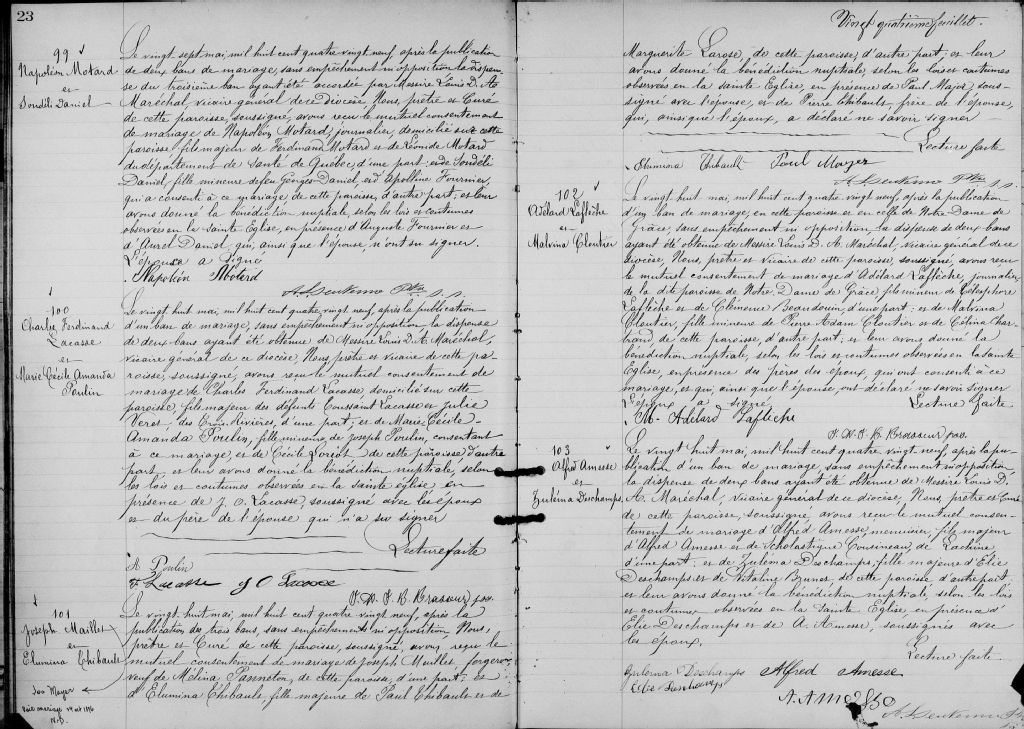 23
99
Napoléon Motard
et
Sondéli Daniel
Le vingt sept mai, mil huit cent quatre vingt neuf, après la publication
de deux bans de mariage, sans empêchement ni opposition la dispen-
se du troisième ban ayant été accordée par Messire Louis D. A.
Maréchal, vicaire général de ce Diocèse, Nous, prêtre et Curé
de cette paroisse, soussigné, avons reçu le mutuel consentement
de mariage de Napoléon Motard, journalier, domicilié sur cette
paroisse, fils majeur de Ferdinand Motard et de Léonide Motard
du département de Santé de Québec, d'une part; et de Sondéli
Daniel, fille mineure de feu Georges Daniel, et d'Apolline Fournier,
qui a consenti à ce mariage, de cette paroisse, d'autre part; et leur
avons donné la bénédiction nuptiale, selon les lois et coutumes
observées en la Sainte Eglise, en présence d'Auguste Fournier et
d'Aurel Daniel, qui, ainsi que l'épouse n'ont su signer.
L'époux a signé
Napoléon Motard
100
Charles Ferdinand
Lacasse
et
Marie Cécile Amanda
Poulin
Le vingt huit mai, mil huit cent quatre vingt neuf, après la publication
d'un ban de mariage, sans empêchement ni opposition la dispense
de deux bans ayant été obtenue de Messire Louis D. A. Maréchal,
vicaire général de ce diocèse, Nous, prêtre et vicaire de cette pa-
roisse, soussigné, avons reçu le mutuel consentement de
mariage de Charles Ferdinand Lacasse, domicilié sur cette
paroisse, fils majeur des défunts Toussaint Lacasse et Julie
Veret, des Trois-Rivières, d'une part; et de Marie Cécile
Amanda Poulin, fille mineure de Joseph Poulin, consentant
à ce mariage, et de Cécile Loriot de cette paroisse d'autre
part, et leur avons donné la bénédiction nuptiale, selon
les lois et coutumes observées en la Sainte église, en
présence de J. O. Lacasse, soussigné avec les époux
et du père de l'épouse qui n'a su signer
Lecture faite
A Poulin
F. Lacasse J O Lacasse
J. N. J. B. Brassour pov.
101
Joseph Maillet
et
Elumina Thibault
Jos Mayer
Le vingt huit mai, mil huit cent quatre vingt neuf, après la
publication des trois bans, sans empêchement ni opposition Nous,
prêtre et Curé de cette paroisse, soussigné, avons reçu le
mutuel consentement de mariage de Joseph Maillet, forgeron,
veuf de Mélina Panneton, de cette paroisse, d'une part; et
d'Elumina Thibault, fille majeure de Paul Thibault et de
Vingt quatrième feuillet.
Marguerite Larose, de cette paroisse, d'autre part, et leur
avons donné la bénédiction nuptiale, selon les lois et coutumes
observées en la Sainte Eglise, en présence de Paul Major, sous-
signé avec l'épouse, et de Pierre Thibault, frère de l'épouse,
qui, ainsi que l'époux, a déclaré ne savoir signer
Lecture faite
Elumina Thibault Paul Mayer
102
Adélard Laflèche
et
Malvina Cloutier
Le vingt huit mai, mil huit cent quatre vingt neuf, après la publication
d'un ban de mariage, en cette paroisse et en celle de Notre Dame de
Grâce, sans empêchement ni opposition la dispense de deux bans
ayant été obtenue de Messire Louis D. A. Maréchal, vicaire général de ce
diocèse, Nous, prêtre et vicaire de cette paroisse, soussigné, avons reçu
le mutuel consentement de mariage d'Adélard Laflèche, journalier,
de la dite paroisse de Notre Dame de Grâce, fils mineur de Télesphore
Laflèche et de Clémence Beaudouin, d'une part; et de Malvina
Cloutier, fille mineure de Pierre Adam Cloutier et de Célina Char-
trand, de cette paroisse, d'autre part, et leur avons donné la
bénédiction nuptiale, selon les lois et coutumes observées en la Sainte
Eglise, en présence des pères des époux, qui ont consenti à ce
mariage, et qui, ainsi que l'épouse, ont déclaré ne savoir signer
L'époux a signé Lecture faite
M. Adélard Laflèche
J. N. J. B. Brassour pov.
103
Alfred Amesse
et
Zuléma Deschamps
Le vingt huit mai, mil huit cent quatre vingt neuf, après la pu-
blication d'un ban de mariage, sans empêchement ni opposition,
la dispense de deux bans ayant été obtenue de Messire Louis D.
A. Maréchal, vicaire général de ce diocèse, Nous, prêtre et Curé
de cette paroisse, soussigné, avons reçu le mutuel consen-
tement de mariage d'Alfred Amesse, menuisier, fils majeur
d'Alfred Amesse et de Scholastique Cousineau, de Lachine
d'une part; et de Zuléma Deschamps, fille majeure d'Elie
Deschamps et de Vitaline Brunet, de cette paroisse d'autre part,
et leur avons donné la bénédiction nuptiale, selon les lois
et coutumes observées en la Sainte Eglise, en présence d'
Elie Deschamps et de A. Amesse, soussignés avec
les époux.
Lecture faite
Zulema Deschamps Alfred Amesse
Elie Deschamps